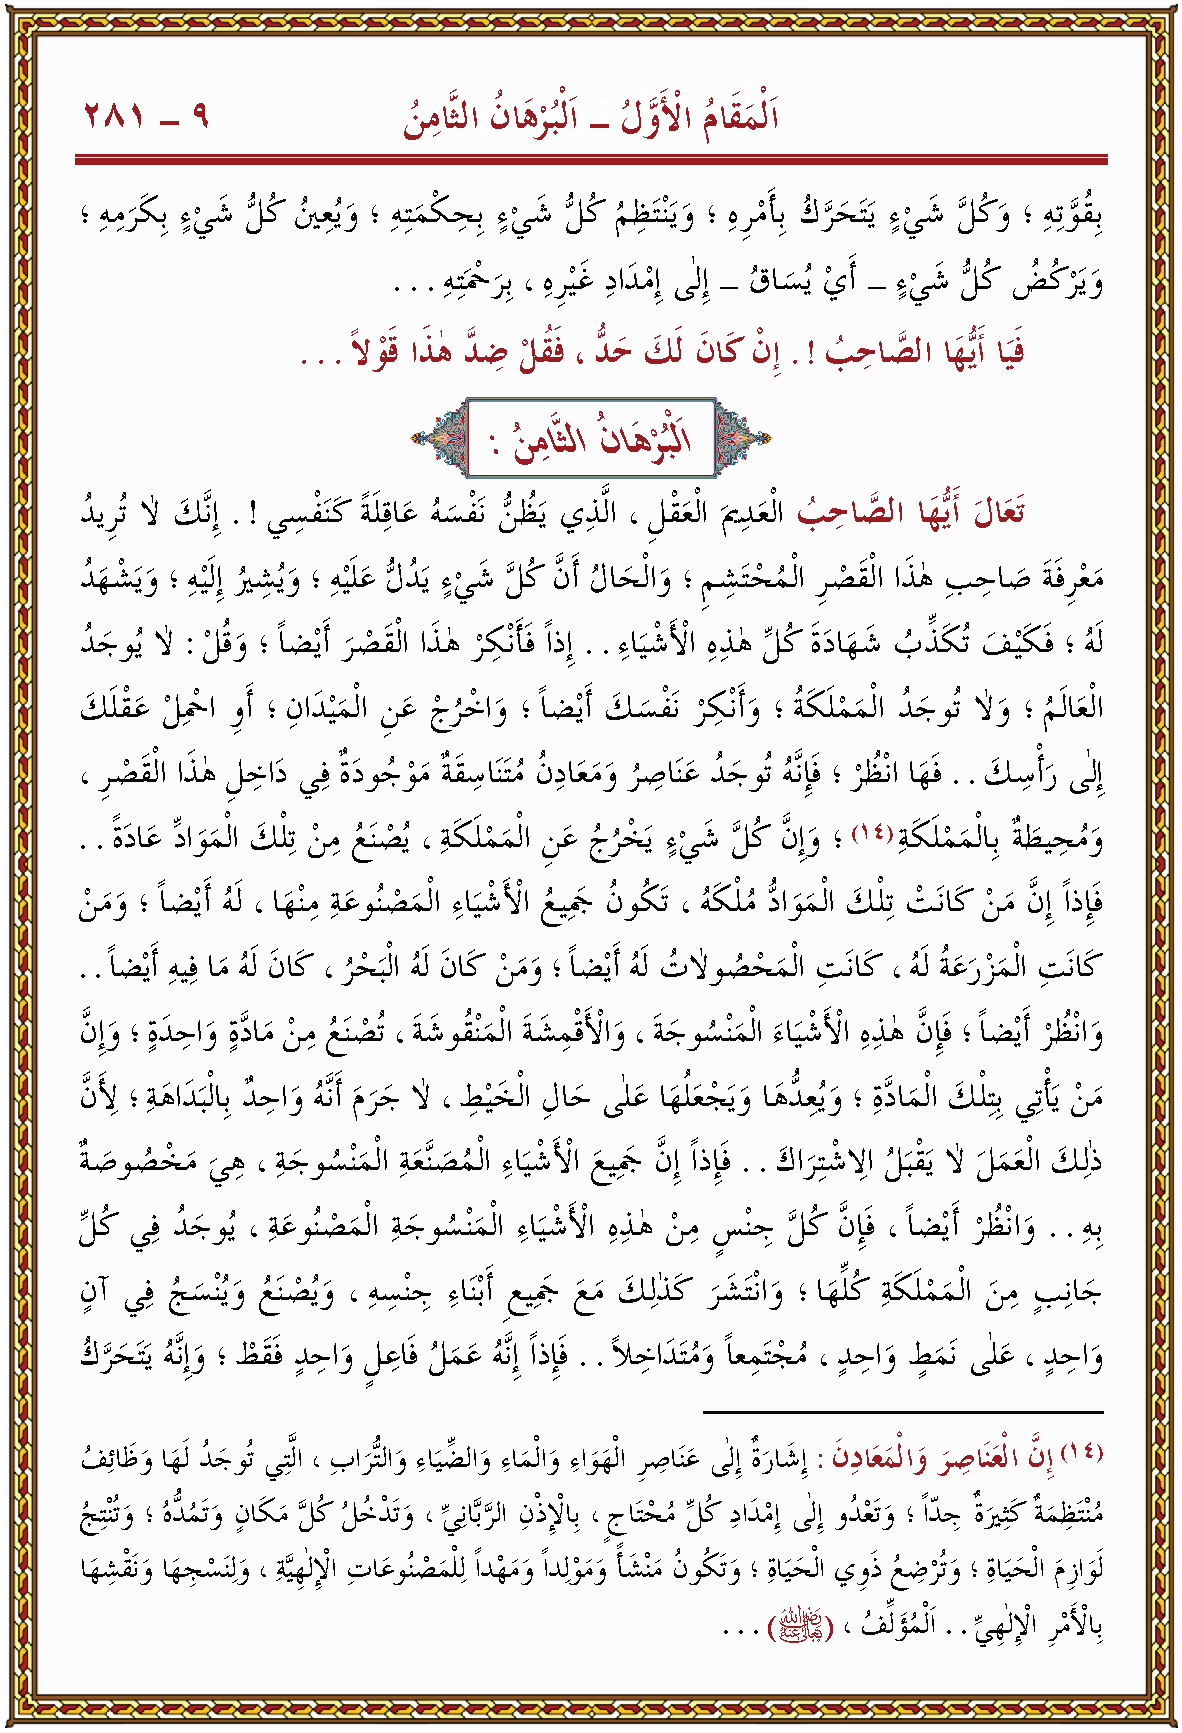 اَلْمَقَامُ الْأَوَّلُ – اَلْبُرْهَانُ الثَّامِنُ
٩ – ٢٨١
بِقُوَّتِهِ ؛ وَكُلَّ شَيْءٍ يَتَحَرَّكُ بِأَمْرِهِ ؛ وَيَنْتَظِمُ كُلُّ شَيْءٍ بِحِكْمَتِهِ ؛ وَيُعِينُ كُلُّ شَيْءٍ بِكَرَمِهِ ؛
وَيَرْكُضُ كُلُّ شَيْءٍ – أَيْ يُسَاقُ – إِلٰى إِمْدَادِ غَيْرِهِ ، بِرَحْمَتِهِ . . .
فَيَا أَيُّهَا الصَّاحِبُ ! . إِنْ كَانَ لَكَ حَدُّ ، فَقُلْ ضِدَّ هٰذَا قَوْلاً . . .
اَلْبُرْهَانُ الثَّامِنُ :
تَعَالَ أَيُّهَا الصَّاحِبُ الْعَدِيمَ الْعَقْلِ ، الَّذِي يَظُنُّ نَفْسَهُ عَاقِلَةً كَنَفْسِي ! . إِنَّكَ لاٰ تُرِيدُ
مَعْرِفَةَ صَاحِبِ هٰذَا الْقَصْرِ الْمُحْتَشِمِ ؛ وَالْحَالُ أَنَّ كُلَّ شَيْءٍ يَدُلُّ عَلَيْهِ ؛ وَيُشِيرُ إِلَيْهِ ؛ وَيَشْهَدُ
لَهُ ؛ فَكَيْفَ تُكَذِّبُ شَهَادَةَ كُلِّ هٰذِهِ الْأَشْيَاءِ . . إِذاً فَأَنْكِرْ هٰذَا الْقَصْرَ أَيْضاً ؛ وَقُلْ : لاٰ يُوجَدُ
الْعَالَمُ ؛ وَلاٰ تُوجَدُ الْمَمْلَكَةُ ؛ وَأَنْكِرْ نَفْسَكَ أَيْضاً ؛ وَاخْرُجْ عَنِ الْمَيْدَانِ ؛ أَوِ احْمِلْ عَقْلَكَ
إِلٰى رَأْسِكَ . . فَهَا انْظُرْ ؛ فَإِنَّهُ تُوجَدُ عَنَاصِرُ وَمَعَادِنُ مُتَنَاسِقَةٌ مَوْجُودَةٌ فِي دَاخِلِ هٰذَا الْقَصْرِ ،
وَمُحِيطَةٌ بِالْمَمْلَكَةِ (١٤) ؛ وَإِنَّ كُلَّ شَيْءٍ يَخْرُجُ عَنِ الْمَمْلَكَةِ ، يُصْنَعُ مِنْ تِلْكَ الْمَوَادِّ عَادَةً . .
فَإِذاً إِنَّ مَنْ كَانَتْ تِلْكَ الْمَوَادُّ مُلْكُهُ ، تَكُونُ جَمِيعُ الْأَشْيَاءِ الْمَصْنُوعَةِ مِنْهَا ، لَهُ أَيْضاً ؛ وَمَنْ
كَانَتِ الْمَزْرَعَةُ لَهُ ، كَانَتِ الْمَحْصُولاٰتُ لَهُ أَيْضاً ؛ وَمَنْ كَانَ لَهُ الْبَحْرُ ، كَانَ لَهُ مَا فِيهِ أَيْضاً . .
وَانْظُرْ أَيْضاً ؛ فَإِنَّ هٰذِهِ الْأَشْيَاءَ الْمَنْسُوجَةَ ، وَالْأَقْمِشَةَ الْمَنْقُوشَةَ ، تُصْنَعُ مِنْ مَادَّةٍ وَاحِدَةٍ ؛ وَإِنَّ
مَنْ يَأْتِي بِتِلْكَ الْمَادَّةِ ؛ وَيُعِدُّهَا وَيَجْعَلُهَا عَلٰى حَالِ الْخَيْطِ ، لاٰ جَرَمَ أَنَّهُ وَاحِدٌ بِالْبَدَاهَةِ ؛ لِأَنَّ
ذٰلِكَ الْعَمَلَ لاٰ يَقْبَلُ الِاشْتِرَاكَ . . فَإِذاً إِنَّ جَمِيعَ الْأَشْيَاءِ الْمُصَنَّعَةِ الْمَنْسُوجَةِ ، هِيَ مَخْصُوصَةٌ
بِهِ . . وَانْظُرْ أَيْضاً ، فَإِنَّ كُلَّ جِنْسٍ مِنْ هٰذِهِ الْأَشْيَاءِ الْمَنْسُوجَةِ الْمَصْنُوعَةِ ، يُوجَدُ فِي كُلِّ
جَانِبٍ مِنَ الْمَمْلَكَةِ كُلِّهَا ؛ وَانْتَشَرَ كَذٰلِكَ مَعَ جَمِيعِ أَبْنَاءِ جِنْسِهِ ، وَيُصْنَعُ وَيُنْسَجُ فِي آنٍ
وَاحِدٍ ، عَلٰى نَمَطٍ وَاحِدٍ ، مُجْتَمِعاً وَمُتَدَاخِلاً . . فَإِذاً إِنَّهُ عَمَلُ فَاعِلٍ وَاحِدٍ فَقَطْ ؛ وَإِنَّهُ يَتَحَرَّكُ
(١٤) إِنَّ الْعَنَاصِرَ وَالْمَعَادِنَ : إِشَارَةٌ إِلٰى عَنَاصِرِ الْهَوَاءِ وَالْمَاءِ وَالضِّيَاءِ وَالتُّرَابِ ، الَّتِي تُوجَدُ لَهَا وَظَائِفُ
مُنْتَظِمَةٌ كَثِيرَةٌ جِدّاً ؛ وَتَعْدُو إِلٰى إِمْدَادِ كُلِّ مُحْتَاجٍ ، بِالْإِذْنِ الرَّبَّانِيِّ ، وَتَدْخُلُ كُلَّ مَكَانٍ وَتَمُدُّهُ ؛ وَتُنْتِجُ
لَوَازِمَ الْحَيَاةِ ؛ وَتُرْضِعُ ذَوِي الْحَيَاةِ ؛ وَتَكُونُ مَنْشَأً وَمَوْلِداً وَمَهْداً لِلْمَصْنُوعَاتِ الْإِلٰهِيَّةِ ، وَلِنَسْجِهَا وَنَقْشِهَا
بِالْأَمْرِ الْإِلٰهِيِّ . . اَلْمُؤَلِّفُ ، (رَضِيَ اللهُ تَعَالَى عَنْهُ) . . .